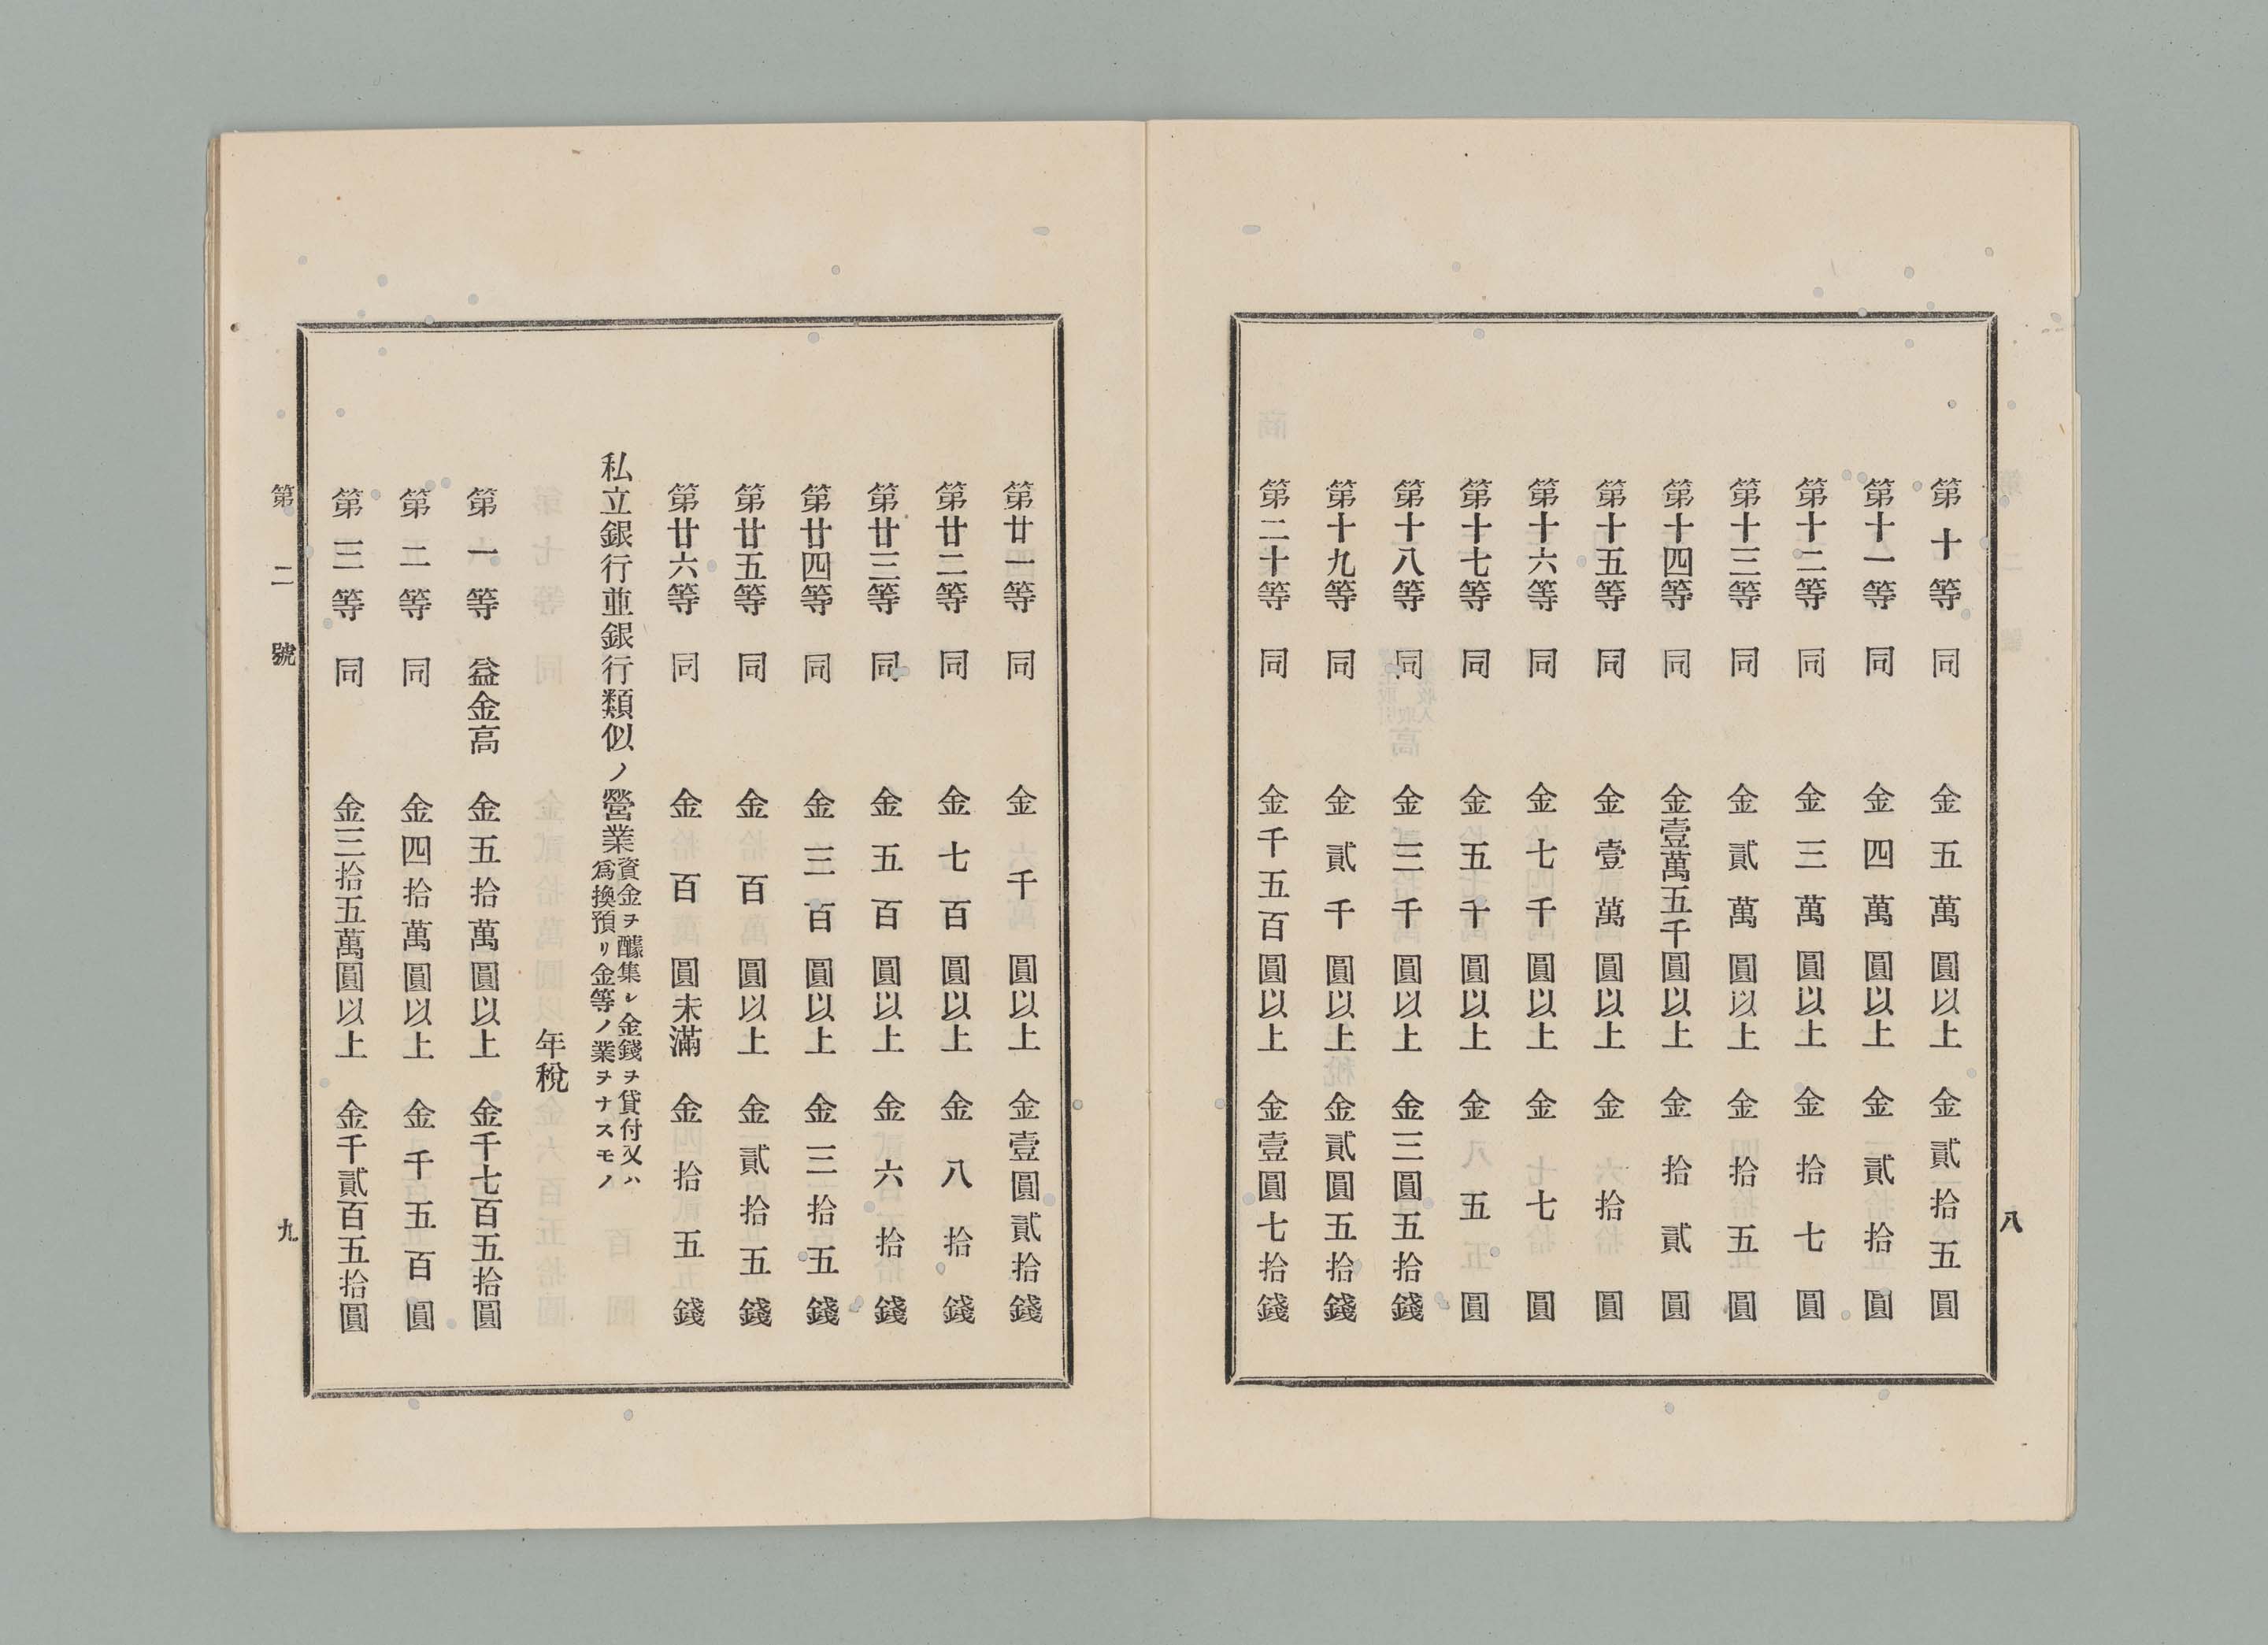 第十等 同 金五萬圓以上 金貳拾五圓
第十一等 同 金四萬圓以上 金貳拾圓
第十二等 同 金三萬圓以上 金拾七圓
第十三等 同 金貳萬圓以上 金拾五圓
第十四等 同 金壹萬五千圓以上 金拾貳圓
第十五等 同 金壹萬圓以上 金拾圓
第十六等 同 金七千圓以上 金七圓
第十七等 同 金五千圓以上 金五圓
第十八等 同 金三千圓以上 金三圓五拾錢
第十九等 同 金貳千圓以上 金貳圓五拾錢
第二十等 同 金千五百圓以上 金壹圓七拾錢
八
第廿一等 同 金千圓以上 金壹圓貳拾錢
第廿二等 同 金七百圓以上 金八拾錢
第廿三等 同 金五百圓以上 金六拾錢
第廿四等 同 金三百圓以上 金三拾五錢
第廿五等 同 金百圓以上 金貳拾五錢
第廿六等 同 金百圓未滿 金拾五錢
私立銀行並銀行類似ノ營業資金ヲ醵集シ金錢ヲ貸付又ハ
爲換預リ金等ノ業ヲナスモノ
年稅
第一等 益金高 金五拾萬圓以上 金千七百五拾圓
第二等 同 金四拾萬圓以上 金千五百圓
第三等 同 金三拾五萬圓以上 金千貳百五拾圓
第二號 九